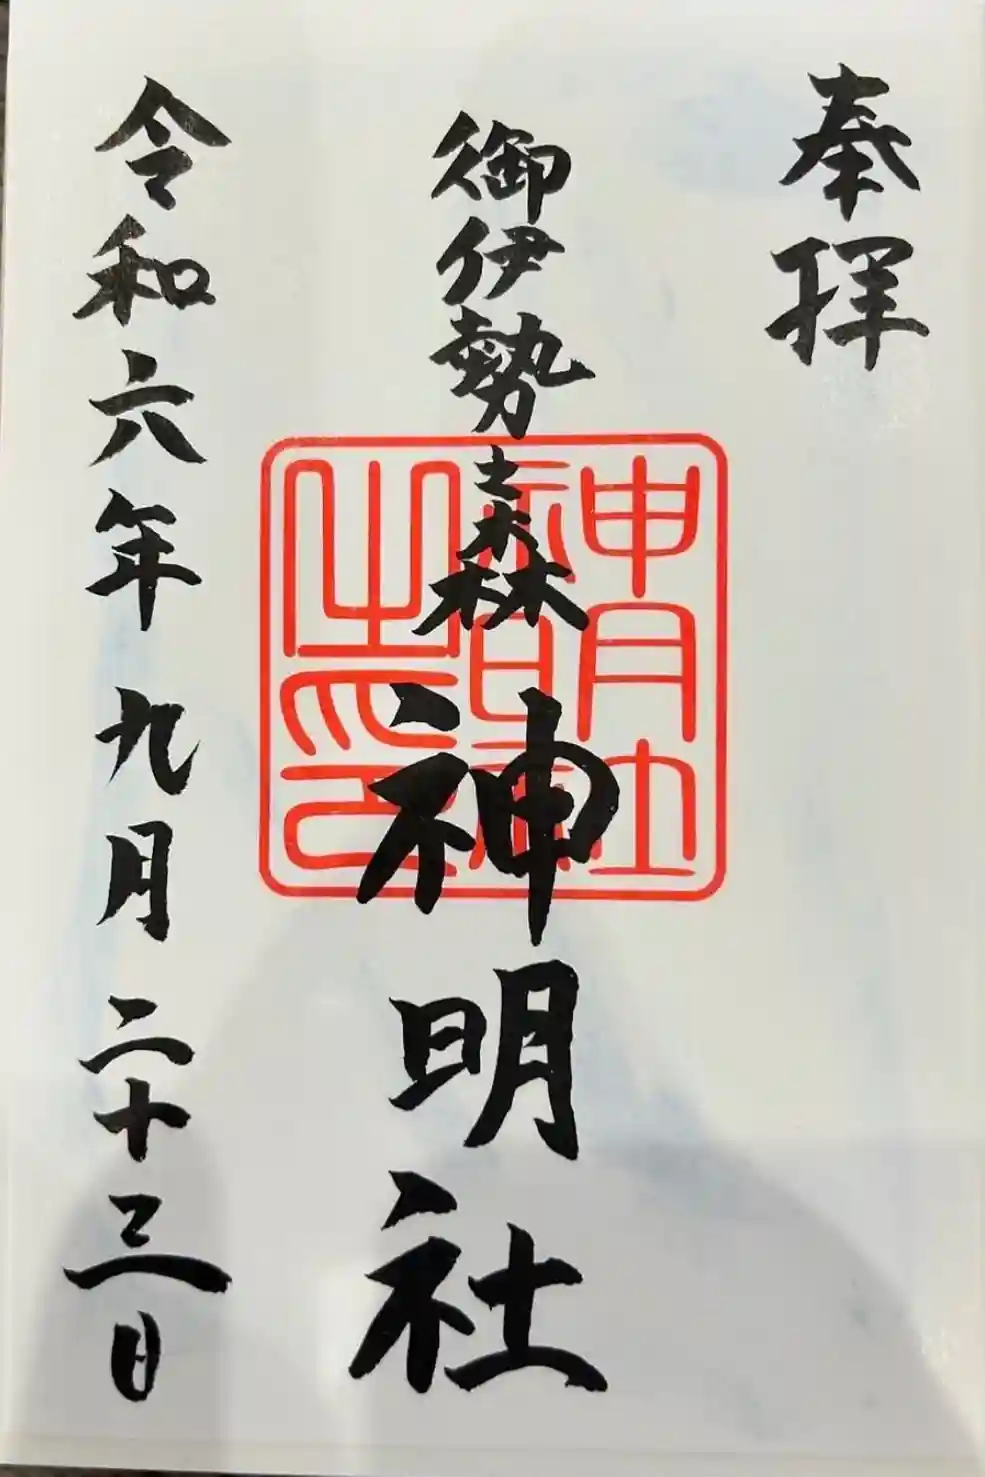 奉拝
御伊勢森
神明社
神明社
神明社
之印
令和六年九月二十三日